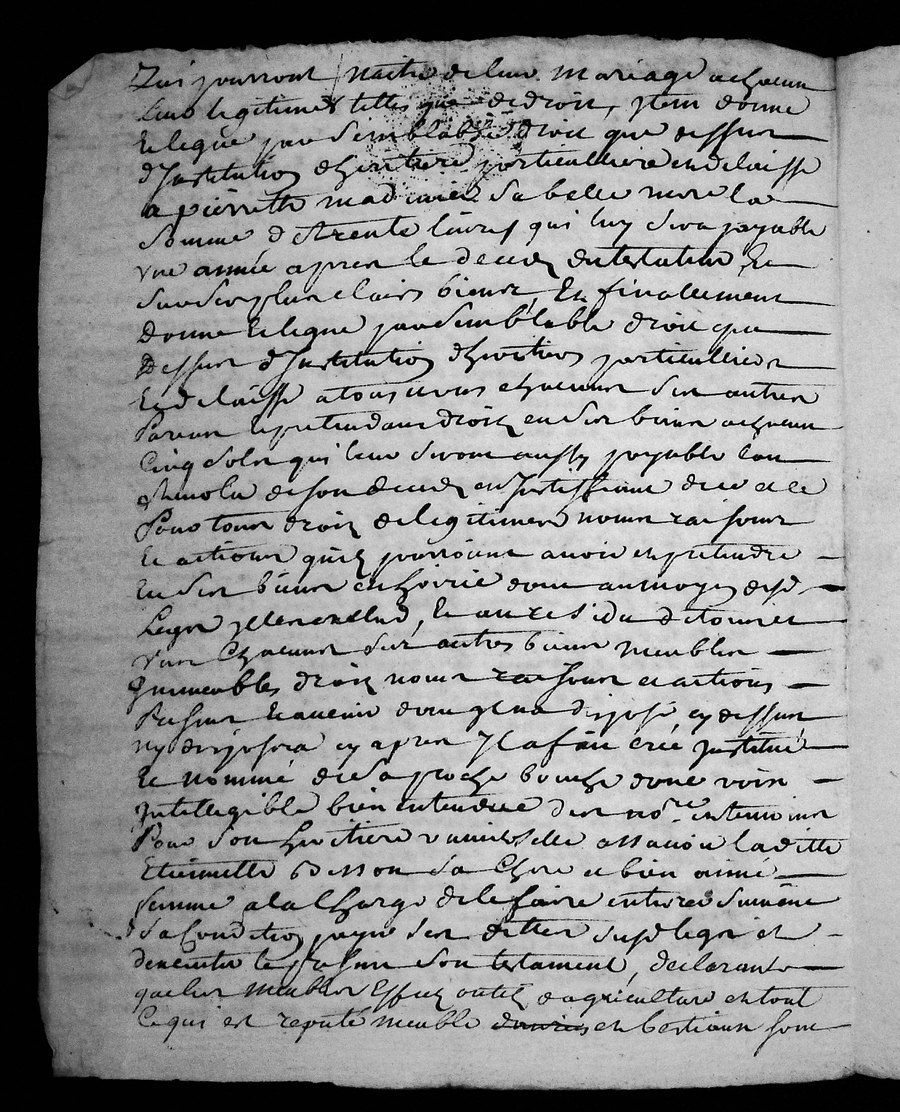 Qui pourront naitre de leur mariage a chacun
leurs legitimes telles que de droit, Jtem donne
Et legue par semblable droit que dessus
d'Institution d'heritiere particulliere et delaisse
a pierrette madinier sa belle mere la
somme de trente livres qui luy sera payable
vne année apres le deces du testateur Et
sur ses plus clairs biens, Et finallement
Donne Et legue par semblable droit que
Dessus d'Institution d'heritiers particulliers
Et delaisse a tous uns chacuns ses autres
Parans pretendans droits en ses biens a chacun
Cinq sols qui leur seront aussy payable l'an
revolu de son deces en Justiffiant
Pour tous droits de legitimes noms raisons
Et actions quils pourroint avoir et pretendre
En ses biens et hoirie dont au moyen desd
Legs il les exclud, Et au residu de tous et
vns Chacuns ses autres biens meubles
Jmmeubles droits noms raisons et actions
Presens Et avenir dont il n'a disposé cy dessus
ny disposera cy apres Jl a fait créé Jnstitué
Et nommé de sa propre bouche d'une voix
Jntelligible bien entendue des no.re et temoins
Pour son heritiere vniverselle assavoir laditte
Etiennette Besson sa Chere et bien aimé
femme a la Charge de le faire enterrer suivant
sa Condition payer ses dettes susd legs et
d'executer le present son testament, declarant
que les meubles Effets outils d'agriculture et tout
Ce qui est reputé meuble et bestiaux sont